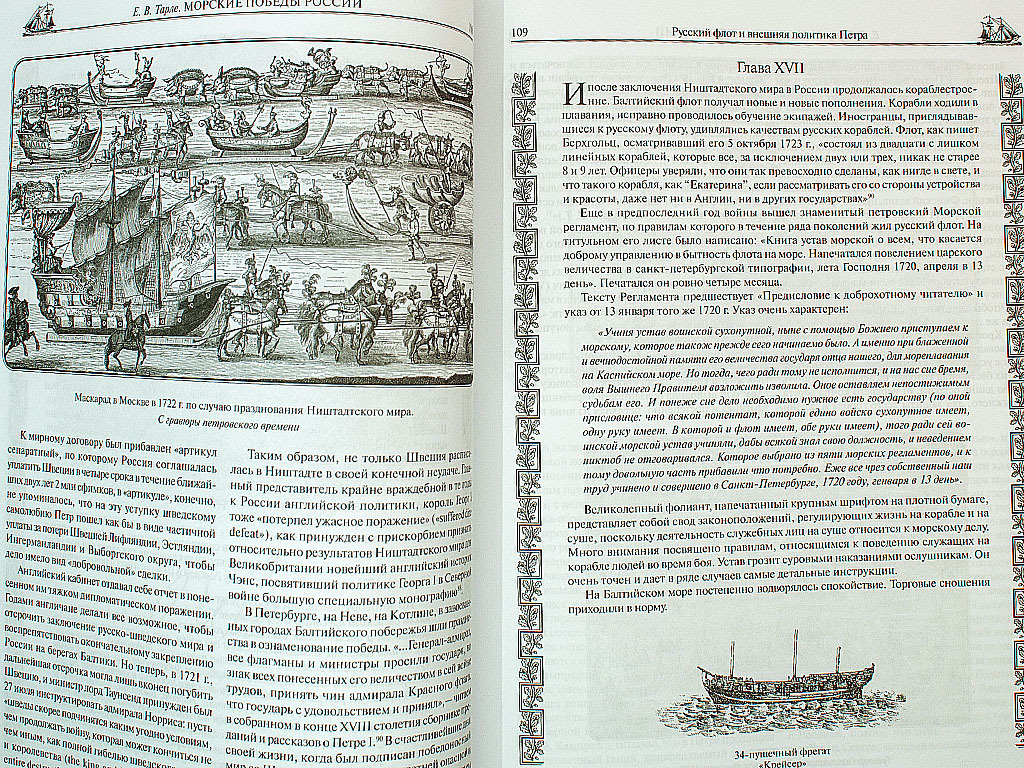 Е. В. Тарле. МОРСКИЕ ПОБЕДЫ РОССИИ
Маскарад в Москве в 1722 г. по случаю празднования Ништадтского мира.
С гравюры петровского времени
К мирному договору был прибавлен «артикул
сепаратный», по которому Россия соглашалась
уплатить Швеции в четыре срока в течение ближай-
ших двух лет 2 млн ефимков, в «артикуле», конечно,
не упоминалось, что на эту уступку шведскому
самолюбию Петр пошел как бы в виде частичной
уплаты за потери Швецией Лифляндии, Эстляндии,
Ингерманландии и Выборгского округа, чтобы
дело имело вид «добровольной» сделки.
Английский кабинет отдавал себе отчет в поне-
сенном им тяжком дипломатическом поражении.
Годами англичане делали все возможное, чтобы
отсрочить заключение русско-шведского мира и
воспрепятствовать окончательному закреплению
России на берегах Балтики. Но теперь, в 1721 г.,
дальнейшая отсрочка могла лишь вконец погубить
Швецию, и министр лорд Таунсенд принужден был
27 июля инструктировать адмирала Норриса: пусть
«шведы скорее подчинятся каким угодно условиям,
чем продолжать войну, которая может кончиться не
чем иным, как полной гибелью шведского
и королевства (the king
entire
Таким образом, не только Швеция распис-
лась в Ништадте в своей конечной неудаче. Глав-
ный представитель крайне враждебной в те годы
к России английской политики, король Георг I
тоже «потерпел ужасное поражение» («suffered
defeat»), как принужден с прискорбием признать
относительно результатов Ништадтского мира для
Великобритании новейший английский историк
Чэнс, посвятивший политике Георга I в Северной
войне большую специальную монографию
В Петербурге, на Неве, на Котлине, в завоеван-
ных городах Балтийского побережья шли праздне-
ства в ознаменование победы. «...Генерал-адмирал,
все флагманы и министры просили государя, в
знак всех понесенных его величеством в сей войне
трудов, принять чин адмирала Красного флага,
что государь с удовольствием и принял»,
в собранном в конце XVIII столетия сборнике пре-
даний и рассказов о Петре I.⁹⁰ В счастливейший
своей жизни, когда был подписан победоносный
109
Русский флот и внешняя политика Петра
Глава XVII
И после заключения Ништадтского мира в России продолжалось кораблестрое-
ние. Балтийский флот получал новые и новые пополнения. Корабли ходили в
плавания, исправно проводилось обучение экипажей. Иностранцы, приглядывав-
шиеся к русскому флоту, удивлялись качествам русских кораблей. Флот, как пишет
Берхгольц, осматривавший его 5 октября 1723 г., «состоял из двадцати с лишком
линейных кораблей, которые все, за исключением двух или трех, никак не старее
8 и 9 лет. Офицеры уверяли, что они так превосходно сделаны, как нигде в свете, и
что такого корабля, как “Екатерина”, если рассматривать его со стороны устройства
и красоты, даже нет ни в Англии, ни в других государствах»⁹¹
Еще в предпоследний год войны вышел знаменитый петровский Морской
регламент, по правилам которого в течение ряда поколений жил русский флот. На
титульном его листе было написано: «Книга устав морской о всем, что касается
доброму управлению в бытность флота на море. Напечатался повелением царского
величества в санкт-петербургской типографии, лета Господня 1720, апреля в 13
день». Печатался он ровно четыре месяца.
Тексту Регламента предшествует «Предисловие к доброхотному читателю» и
указ от 13 января того же 1720 г. Указ очень характерен:
«Учиня устав воинской сухопутной, ныне с помощью Божиею приступаем к
морскому, которое також прежде сего начинаемо было. А именно при блаженной
и вечнодостойной памяти его величества государя отца нашего, для мореплавания
на Каспийском море. Но тогда, чего ради тому не исполнится, и на нас сие бремя,
воля Вышнего Правителя возложить изволила. Оное оставляем непостижимым
судьбам его. И понеже сие дело необходимо нужное есть государству (по оной
присловице: что всякой потентат, которой едино войско сухопутное имеет,
одну руку имеет. В которой и флот имеет, обе руки имеет), того ради сей во-
инской морской устав учинили, дабы всякой знал свою должность, и неведением
никтоб не отговаривался. Которое выбрано из пяти морских регламентов, и к
тому довольную часть прибавили что потребно. Еже все чрез собственный наш
труд учинено и совершено в Санкт-Петербурге, 1720 году, генваря в 13 день».
Великолепный фолиант, напечатанный крупным шрифтом на плотной бумаге,
представляет собой свод законоположений, регулирующих жизнь на корабле и на
суше, поскольку деятельность служебных лиц на суше относится к морскому делу.
Много внимания посвящено правилам, относящимся к поведению служащих на
корабле людей во время боя. Устав грозит суровыми наказаниями ослушникам. Он
очень точен и дает в ряде случаев самые детальные инструкции.
На Балтийском море постепенно водворялось спокойствие. Торговые сношения
приходили в норму.
34-пушечный фрегат
«Крейсер»